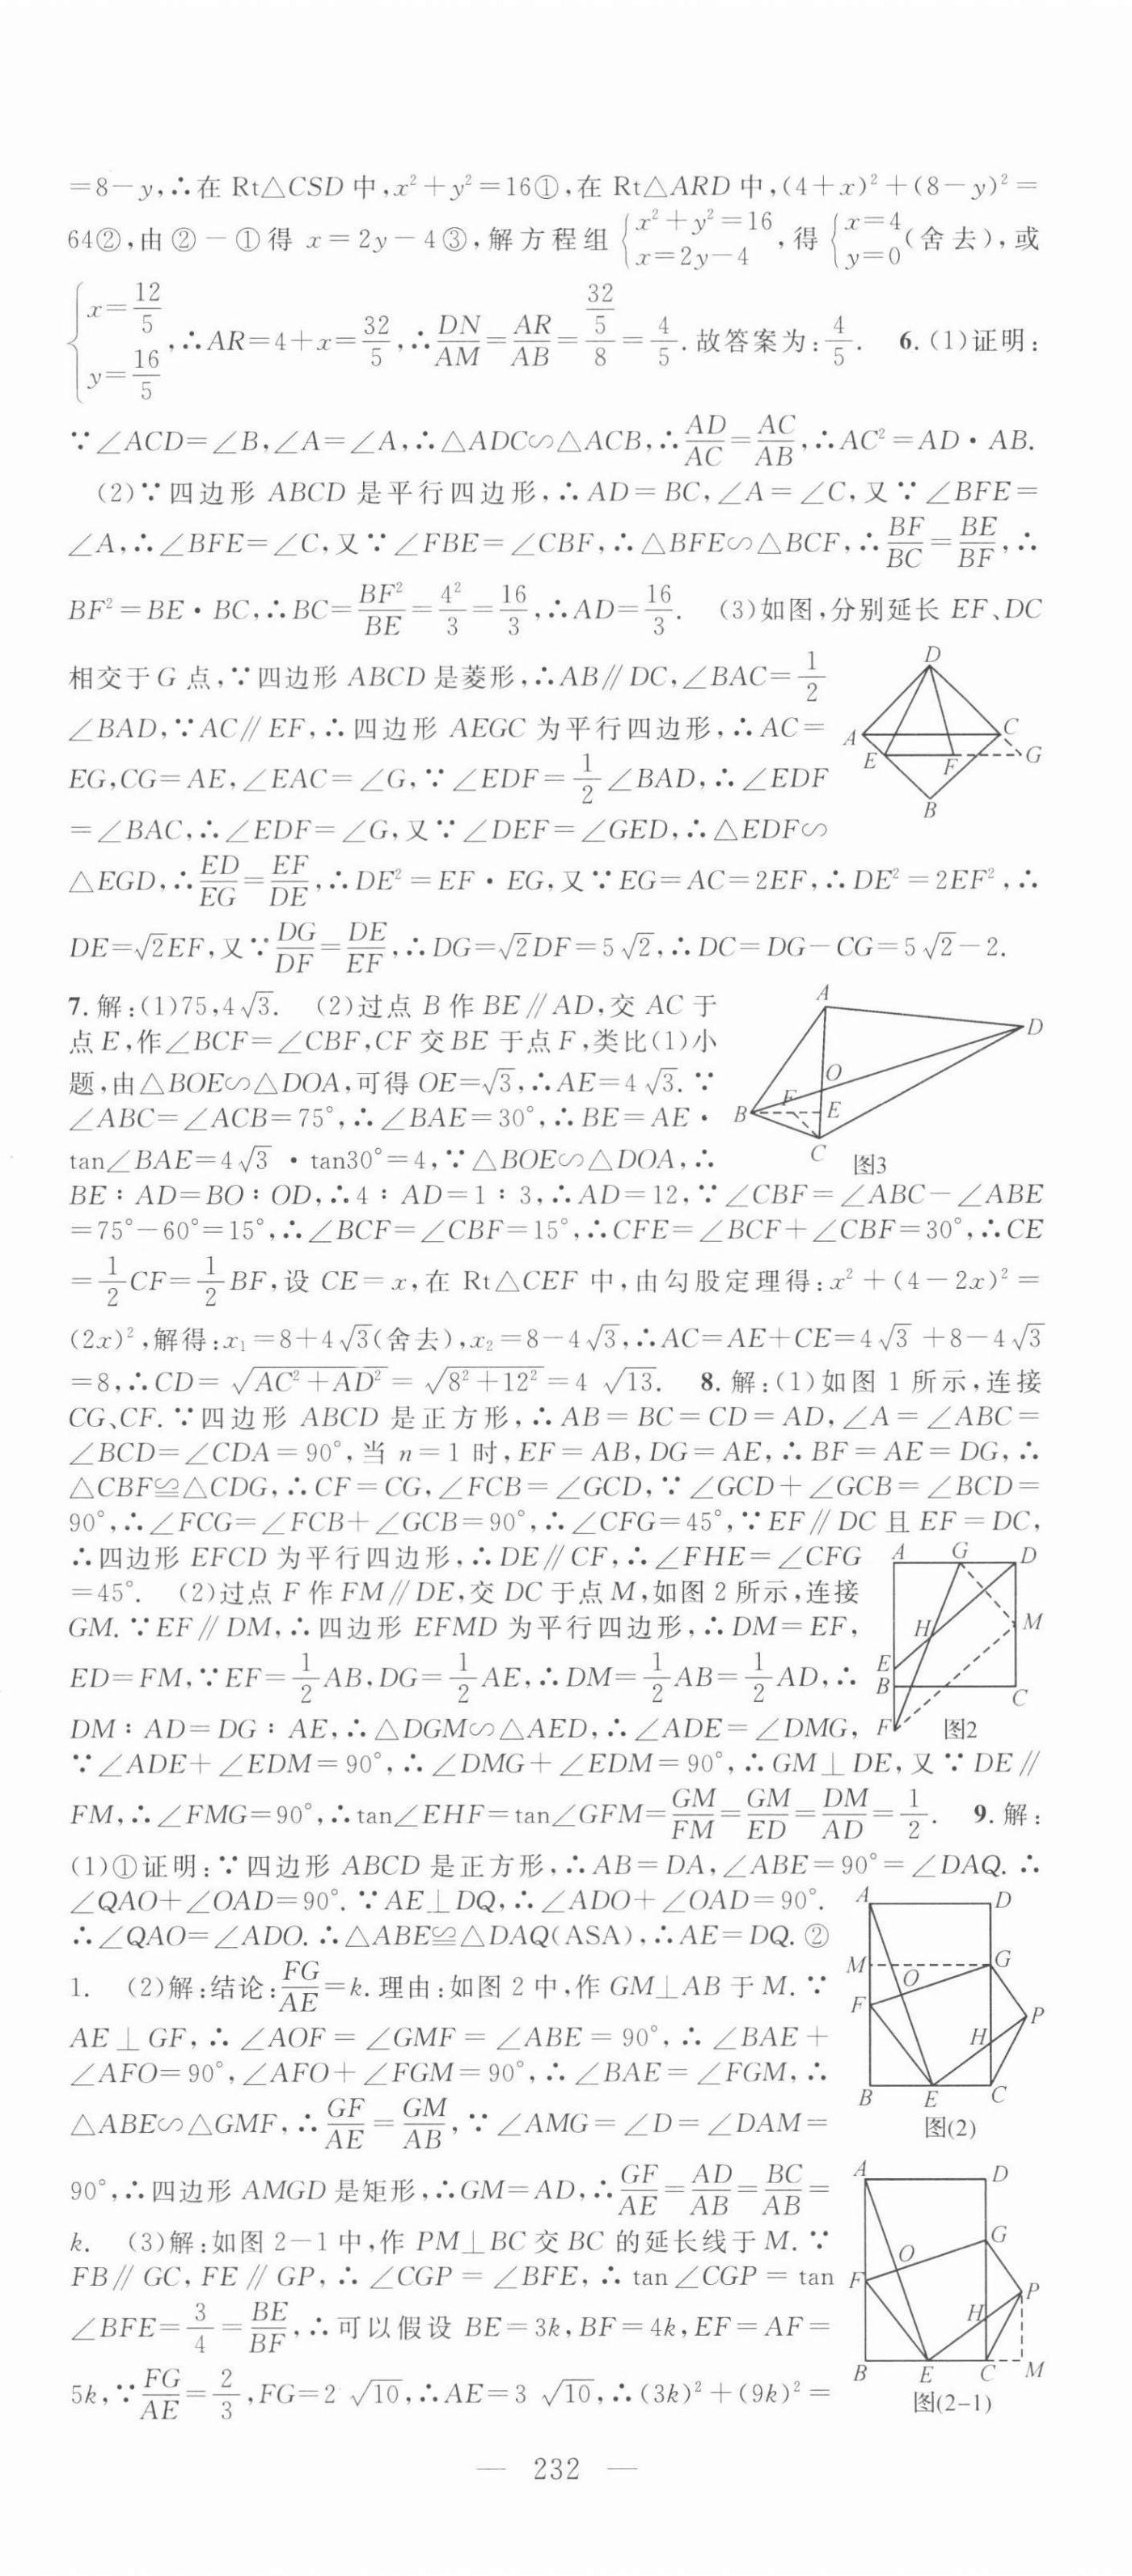 =8-y,∴在 Rt△CSD 中,x²+y²=16①,在 Rt△ARD 中,(4+x)²+(8-y)²=
64②,由②-①得 x=2y-4③,解方程组{x²+y²=16 x=2y-4,得{x=4 y=0(舍去),或
{x=12/5 y=16/5,∴AR=4+x=32/5,∴DN/AM=AR/AB=(32/5)/8=4/5.故答案为:4/5. 6.(1)证明:
∵∠ACD=∠B,∠A=∠A,∴△ADC∽△ACB,∴AD/AC=AC/AB,∴AC²=AD·AB.
(2)∵四边形 ABCD 是平行四边形,∴AD=BC,∠A=∠C,又∵∠BFE=
∠A,∴∠BFE=∠C,又∵∠FBE=∠CBF,∴△BFE∽△BCF,∴BF/BC=BE/BF,∴
BF²=BE·BC,∴BC=BF²/BE=4²/3=16/3,∴AD=16/3. (3)如图,分别延长 EF、DC
相交于G点,∵四边形 ABCD 是菱形,∴AB∥DC,∠BAC=1/2
∠BAD,∵AC∥EF,∴四边形 AEGC 为平行四边形,∴AC=
EG,CG=AE,∠EAC=∠G,∵∠EDF=1/2∠BAD,∴∠EDF
=∠BAC,∴∠EDF=∠G,又∵∠DEF=∠GED,∴△EDF∽
△EGD,∴ED/EG=EF/DE,∴DE²=EF·EG,又∵EG=AC=2EF,∴DE²=2EF²,∴
DE=√2EF,又∵DG/DF=DE/EF,∴DG=√2DF=5√2,∴DC=DG-CG=5√2-2.
D
A
C
E
F
G
B
7.解:(1)75,4√3. (2)过点 B 作 BE∥AD,交 AC 于
点E,作∠BCF=∠CBF,CF 交BE 于点F,类比(1)小
题,由△BOE∽△DOA,可得 OE=√3,∴AE=4√3.∵
∠ABC=∠ACB=75°,∴∠BAE=30°,∴BE=AE·
tan∠BAE=4√3·tan30°=4,∵△BOE∽△DOA,∴
A
D
O
B
F
E
C
图3
BE:AD=BO:OD,∴4:AD=1:3,∴AD=12,∵∠CBF=∠ABC-∠ABE
=75°-60°=15°,∴∠BCF=∠CBF=15°,∴CFE=∠BCF+∠CBF=30°,∴CE
=1/2CF=1/2BF,设 CE=x,在 Rt△CEF 中,由勾股定理得:x²+(4-2x)²=
(2x)²,解得:x₁=8+4√3(舍去),x₂=8-4√3,∴AC=AE+CE=4√3+8-4√3
=8,∴CD=√(AC²+AD²)=√(8²+12²)=4√13. 8.解:(1)如图 1 所示,连接
CG、CF.∵四边形 ABCD 是正方形,∴AB=BC=CD=AD,∠A=∠ABC=
∠BCD=∠CDA=90°,当 n=1 时,EF=AB,DG=AE,∴BF=AE=DG,∴
△CBF≌△CDG,∴CF=CG,∠FCB=∠GCD,∵∠GCD+∠GCB=∠BCD=
90°,∴∠FCG=∠FCB+∠GCB=90°,∴∠CFG=45°,∵EF∥DC 且 EF=DC,
∴四边形 EFCD 为平行四边形,∴DE∥CF,∴∠FHE=∠CFG
=45°. (2)过点 F 作 FM∥DE,交 DC 于点M,如图 2 所示,连接
GM.∵EF∥DM,∴四边形 EFMD 为平行四边形,∴DM=EF,
ED=FM,∵EF=1/2AB,DG=1/2AE,∴DM=1/2AB=1/2AD,∴
DM:AD=DG:AE,∴△DGM∽△AED,∴∠ADE=∠DMG,
A
G
D
H
M
E
B
C
F
图2
∵∠ADE+∠EDM=90°,∴∠DMG+∠EDM=90°,∴GM⊥DE,又∵DE∥
FM,∴∠FMG=90°,∴tan∠EHF=tan∠GFM=GM/FM=GM/ED=DM/AD=1/2. 9.解:
(1)①证明:∵四边形 ABCD 是正方形,∴AB=DA,∠ABE=90°=∠DAQ.∴
∠QAO+∠OAD=90°.∵AE⊥DQ,∴∠ADO+∠OAD=90°.
∴∠QAO=∠ADO.∴△ABE≌△DAQ(ASA),∴AE=DQ.②
1. (2)解:结论:FG/AE=k.理由:如图 2 中,作 GM⊥AB 于 M.∵
AE⊥GF,∴∠AOF=∠GMF=∠ABE=90°,∴∠BAE+
∠AFO=90°,∠AFO+∠FGM=90°,∴∠BAE=∠FGM,∴
△ABE∽△GMF,∴GF/AE=GM/AB,∵∠AMG=∠D=∠DAM=
A
D
M
G
O
F
P
H
B
E
C
图(2)
90°,∴四边形 AMGD 是矩形,∴GM=AD,∴GF/AE=AD/AB=BC/AB=
k. (3)解:如图 2-1 中,作 PM⊥BC 交 BC 的延长线于 M.∵
FB∥GC,FE∥GP,∴∠CGP=∠BFE,∴tan∠CGP=tan
∠BFE=3/4=BE/BF,∴可以假设 BE=3k,BF=4k,EF=AF=
5k,∵FG/AE=2/3,FG=2√10,∴AE=3√10,∴(3k)²+(9k)²=
A
D
G
O
F
P
H
B
E
C
M
图(2-1)
— 232 —